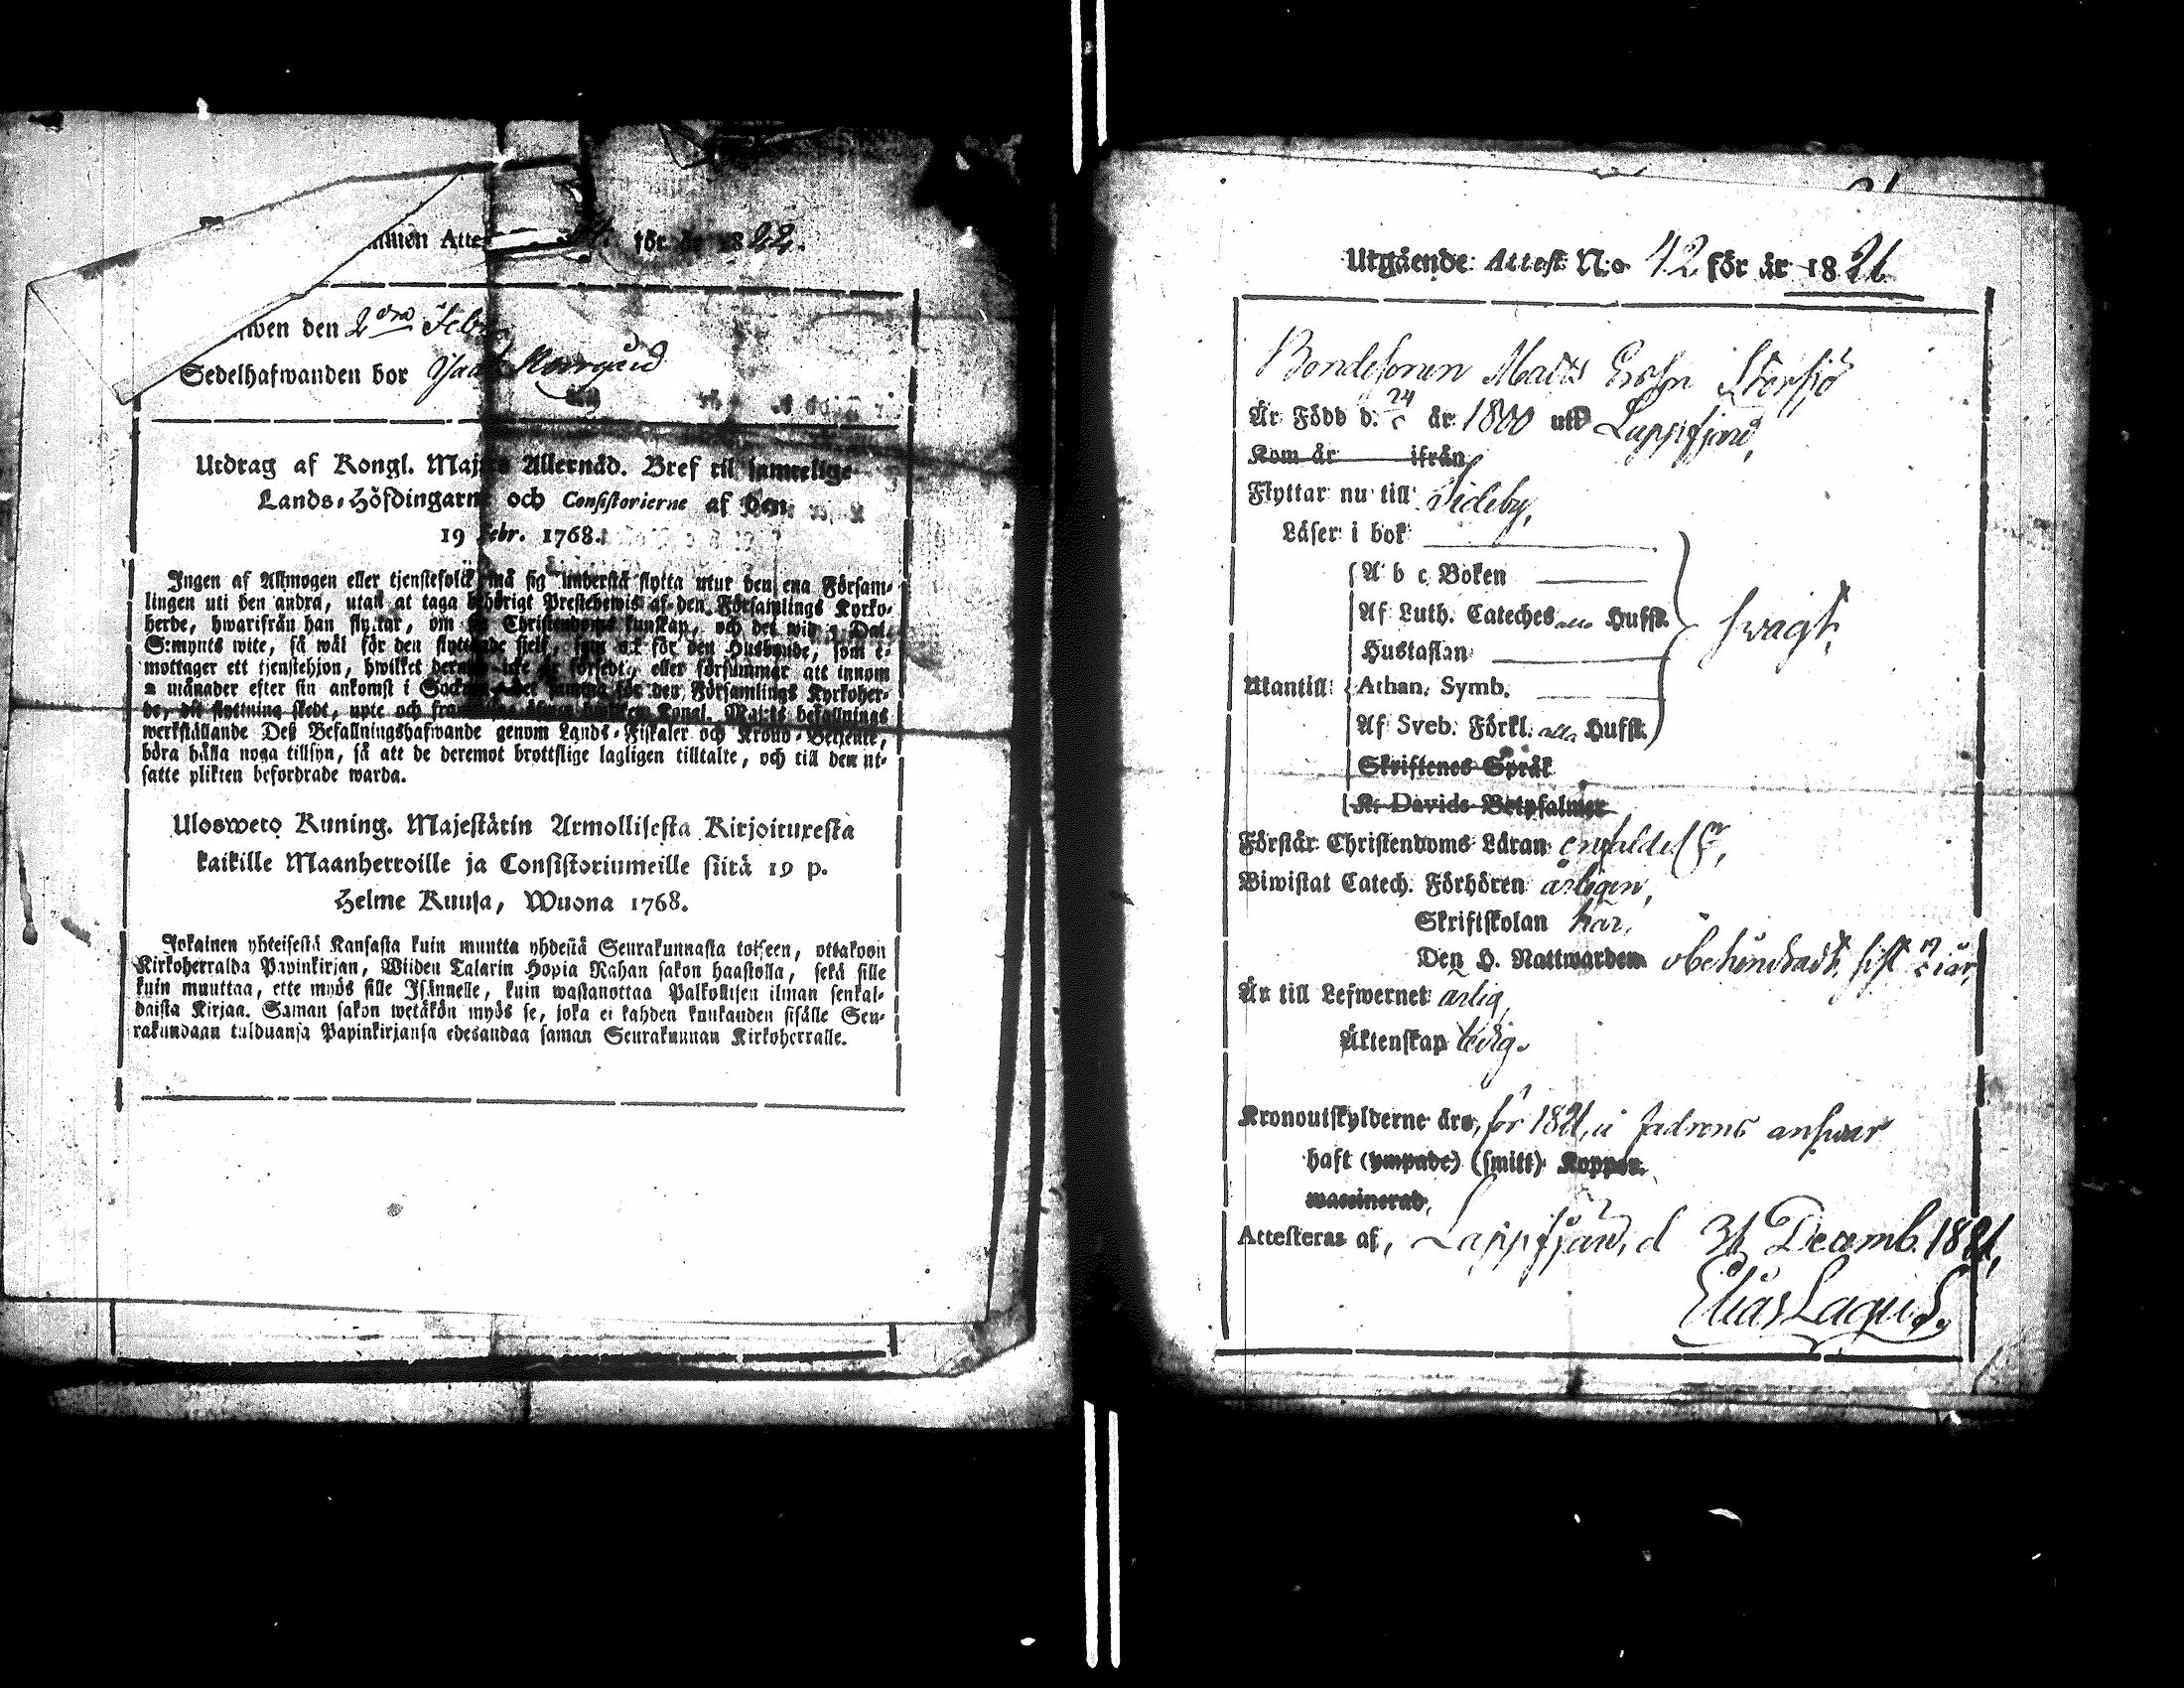 Atte för år 1822.
den 2dra Febr
Sedelhafwanden bor
Utdrag af Kongl. Maj:ts Allernåd. Bref til samtelige
Lands-Höfdingarne och Consistorierne af den
19 Febr. 1768.
Ingen af Allmogen eller tjenstefolck må sig understå flytta utur den ena Försam-
lingen uti den andra, utan at taga behörigt Prestebewis af den Församlings Kyrko-
herde, hwarifrån han flyttar, om Christendoms kunskap, och det wid Dal.
S:mynts wite, så wäl för den flyttande sjelf, som ock för den Husbonde, som e-
mottager ett tjenstehjon, hwilket icke är försedt, eller försummar att innom
2 månader efter sin ankomst i för den Församlings Kyrkoher-
de, dit flyttning skedt, upte och Kongl. Maj:ts befallnings
werkställande Deß Befallningshafwande genom Lands-Fiskaler och Krono-Betjente,
böra hålla noga tillsyn, så att de deremot brottslige lagligen tilltalte, och till den ut-
satte plikten befordrade warda.
Ulosweto Kuning. Majestätin Armollisesta Kirjoituxesta
kaikille Maanherroille ja Consistoriumeille siitä 19 p.
Helme Kuusa, Wuona 1768.
Jokainen yhteisestä Kansasta kuin muutta yhdestä Seurakunnasta toiseen, ottakoon
Kirkoherralda Papinkirjan, Wiiden Talarin Hopia Rahan sakon haastolla, sekä sille
kuin muuttaa, ette myös sille Isännelle, kuin wastanottaa Palkollisen ilman senkal-
daista Kirjaa. Saman sakon wetäkön myös se, joka ei kahden kuukauden sisälle Seu-
rakundaan tulduansa Papinkirjansa edesandaa saman Seurakunnan Kirkoherralle.
Utgående Attest N:o 42 för år 1821
Bondesonen Matts Ersson Storsjö
Är Född d. 24 år 1800 uti Lappfjärd,
Kom år ifrån
Flyttar nu till Sideby,
Läser i bok
A b c Boken
Af Luth. Cateches alla Hufst.
Hustaflan
Utantill Athan. Symb.
Af Sveb. Förkl. alla Hufst.
swagt,
Skriftenes Språk
K. Davids Botpsalmer
Förstår Christendoms Läran
Biwistat Catech. Förhören årligen,
Skriftskolan här,
Den H. Nattwarden obehindradt, sist
Är till Lefwernet ärlig,
Äktenskap ledig.
Kronoutskylderne äro, för 1821, i fadrens answar
haft (ympade) (smitt) Koppor.
waccinerad,
Attesteras af, Lappfjärd, d 31 Decemb. 1821,
Elias Lagus.